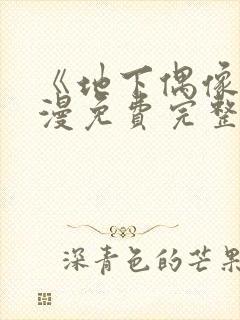 《地下偶像
漫免費完整
深青色的芒果